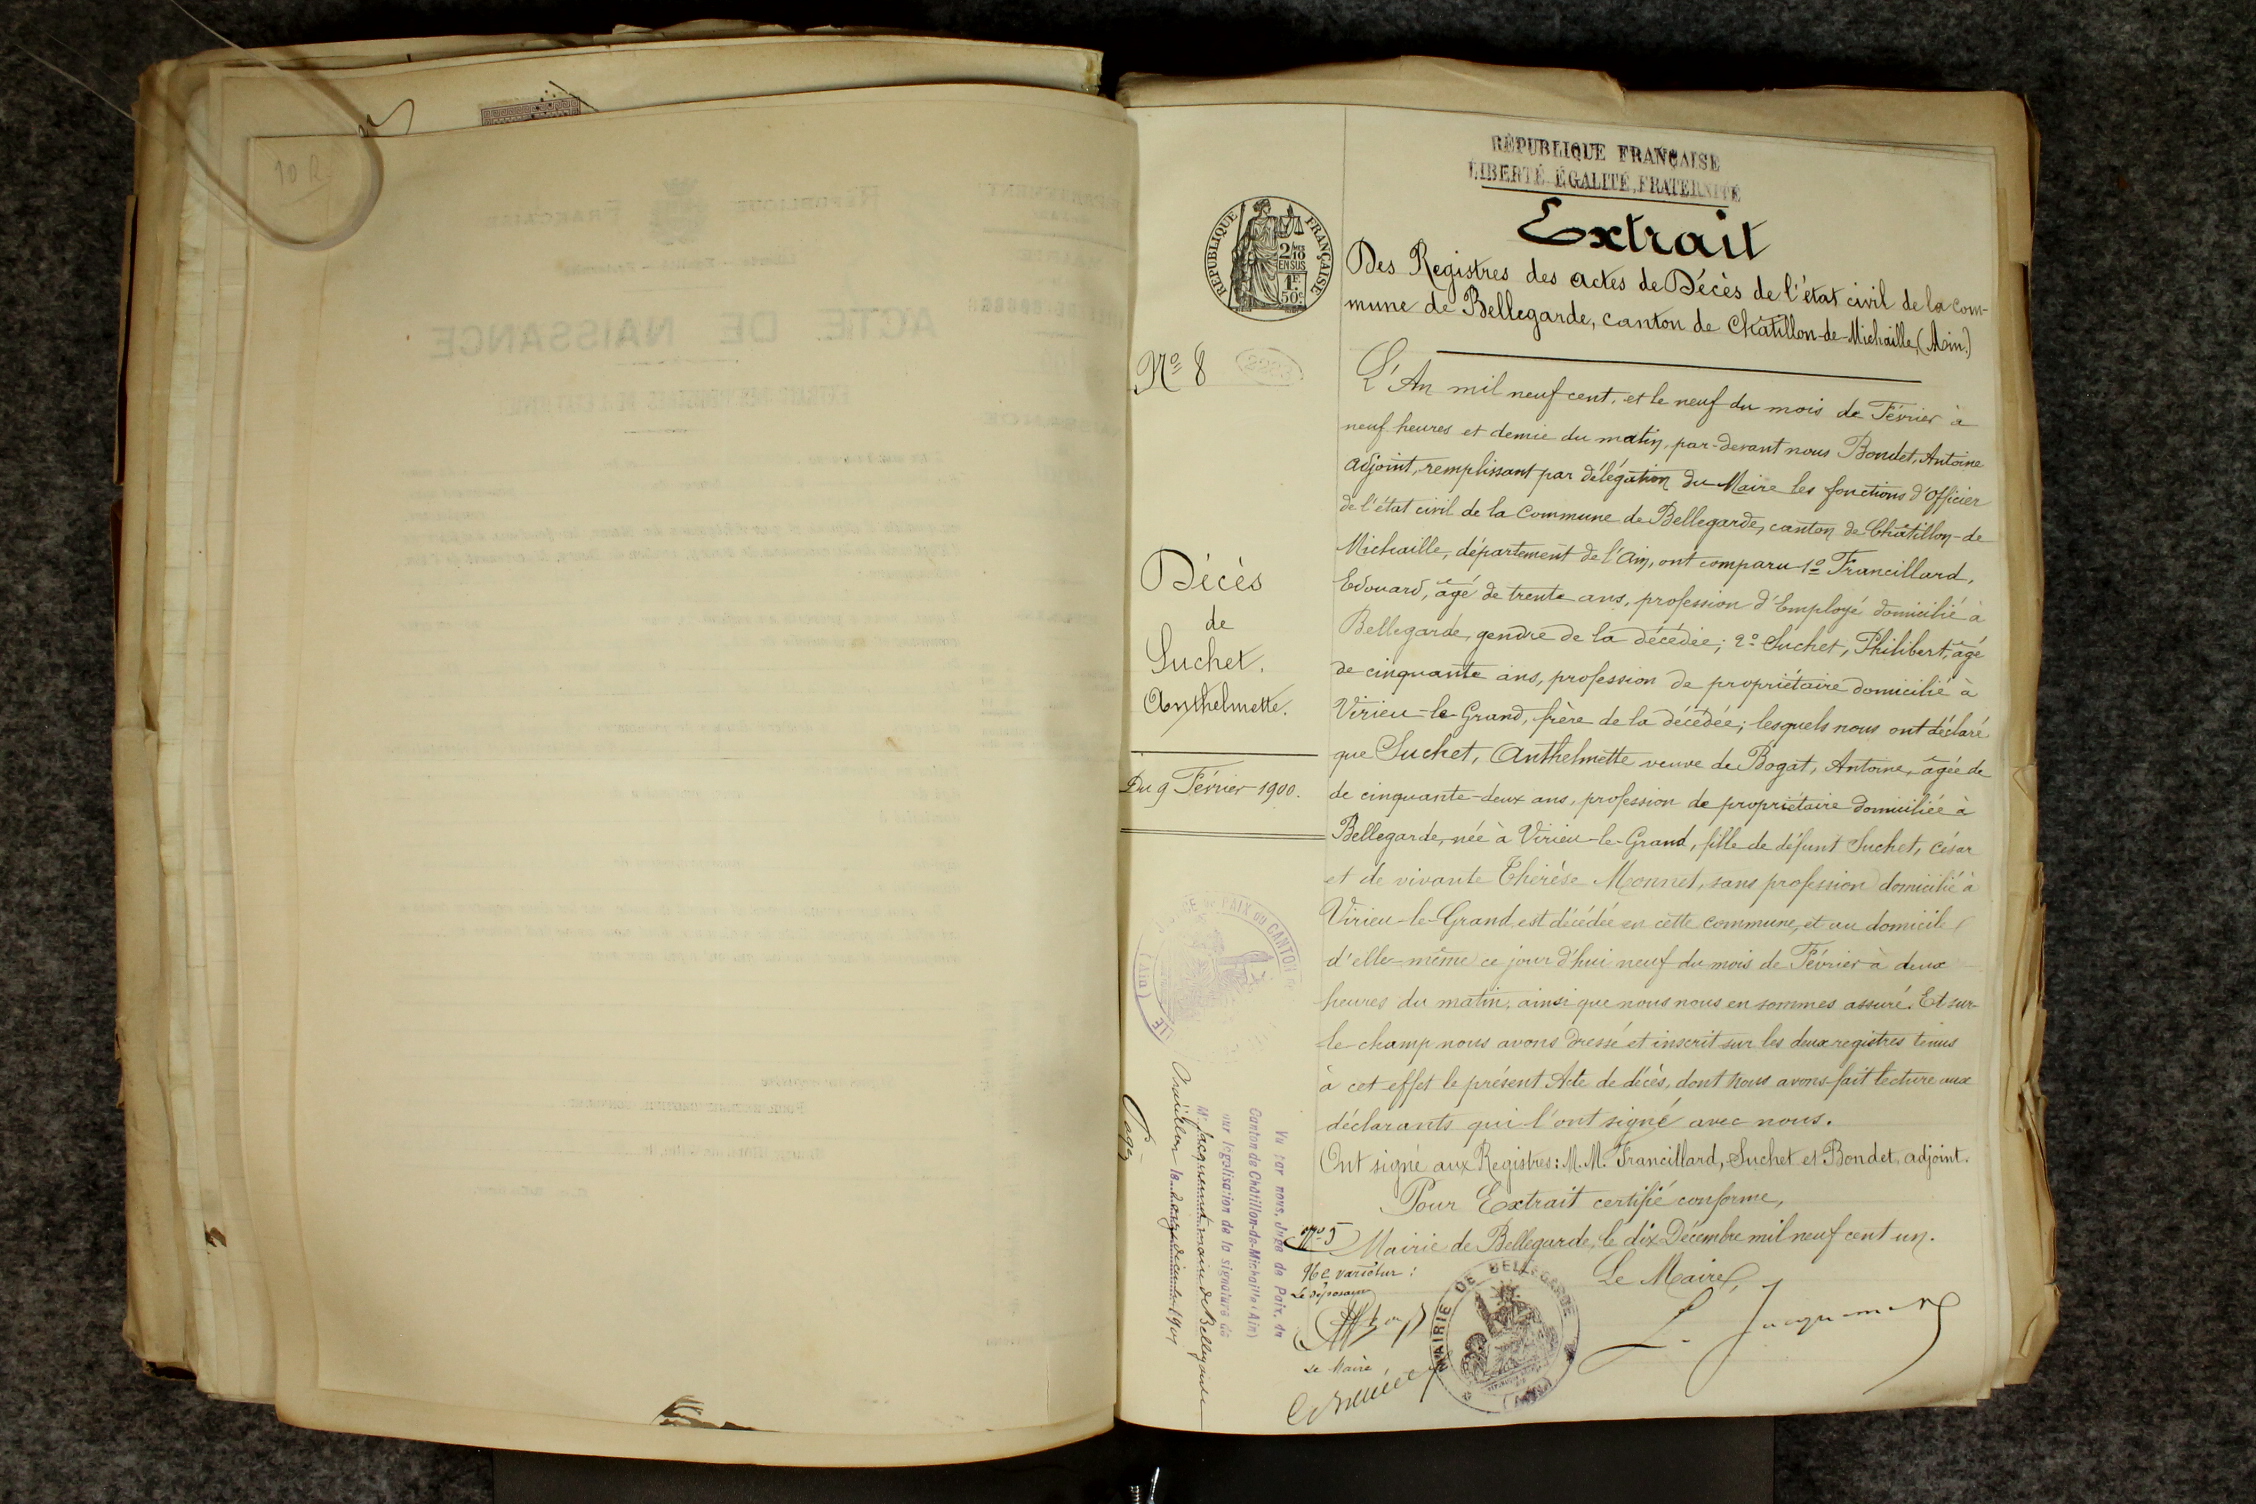 10 R.
RÉPUBLIQUE FRANÇAISE
LIBERTÉ ÉGALITÉ, FRATERNITÉ
Extrait
Des Registres des actes de Décès de l'état civil de la com-
mune de Bellegarde, canton de Châtillon-de-Michaille, (Ain.)
RÉPUBLIQUE FRANÇAISE
2/10
EN SUS
1F.
50c
Nº 8
Décès
de
Suchet.
Anthelmette.
Du 9 Février 1900.
L'An mil neuf cent, et le neuf du mois de Février à
neuf heures et demie du matin, par-devant nous Bondet, Antoine
adjoint, remplissant par délégation du Maire les fonctions d'Officier
de l'état civil de la Commune de Bellegarde, canton de Châtillon-de
Michaille, département de l'Ain, ont comparu 1º Francillard,
Edouard, âgé de trente ans, profession d'Employé domicilié à
Bellegarde, gendre de la décédée; 2º Suchet, Philibert, âgé
de cinquante ans, profession de propriétaire domicilié à
Virieu-le-Grand, frère de la décédée; lesquels nous ont déclaré
que Suchet, Anthelmette veuve de Bogat, Antoine, âgée de
de cinquante-deux ans, profession de propriétaire domiciliée à
Bellegarde, née à Virieu-le-Grand, fille de défunt Suchet, César
et de vivante Thérèse Monnet, sans profession domicilié à
Virieu-le-Grand est décédée en cette commune, et au domicile
d'elle-même ce jour d'hui neuf du mois de Février à deux
heures du matin, ainsi que nous nous en sommes assuré. Et sur-
le-champ nous avons dressé et inscrit sur les deux registres tenus
à cet effet le présent Acte de décès, dont nous avons fait lecture aux
déclarants qui l'ont signé avec nous.
Ont signé aux Registres: M.M. Francillard, Suchet et Bondet, adjoint.
Pour Extrait certifié conforme,
Mairie de Bellegarde, le dix Décembre mil neuf cent un.
Le Maire,
L. Jacquemard
Nº 5
Ne varietur:
Le déposant
Le Maire,
MAIRIE DE BELLEGARDE
(AIN)
DE PAIX DU CANTON
(Ain)
Vu par nous, Juge de Paix du
Canton de Châtillon-de-Michaille (Ain)
sur légalisation de la signature de
Mr Jacquemard maire de Bellegarde
le douze décembre 1901